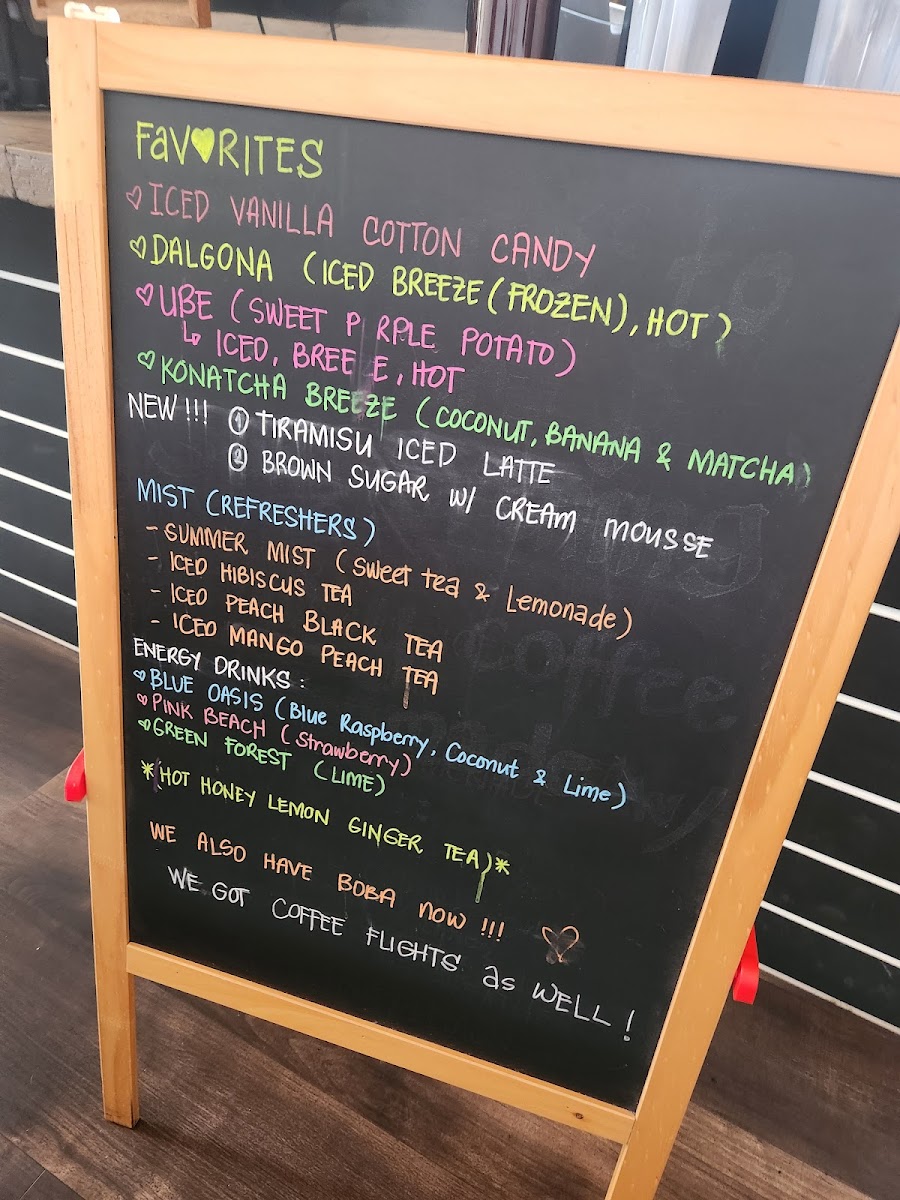 FaV♥RITES
♡ ICED VANILLA COTTON CANDY
♡ DALGONA (ICED BREEZE (FROZEN), HOT)
♡ UBE (SWEET P RPLE POTATO)
↳ ICED, BREE E, HOT
♡ KONATCHA BREEZE (COCONUT, BANANA & MATCHA)
NEW!!! ① TIRAMISU ICED LATTE
② BROWN SUGAR W/ CREAM MOUSSE
MIST (REFRESHERS)
- SUMMER MIST (Sweet tea & Lemonade)
- ICED HIBISCUS TEA
- ICED PEACH BLACK TEA
- ICED MANGO PEACH TEA
ENERGY DRINKS:
♡ BLUE OASIS (Blue Raspberry, Coconut & Lime)
♡ PINK BEACH (Strawberry)
♡ GREEN FOREST (LIME)
*(HOT HONEY LEMON GINGER TEA)*
WE ALSO HAVE BOBA NOW!!! ♡
WE GOT COFFEE FLIGHTS as WELL!